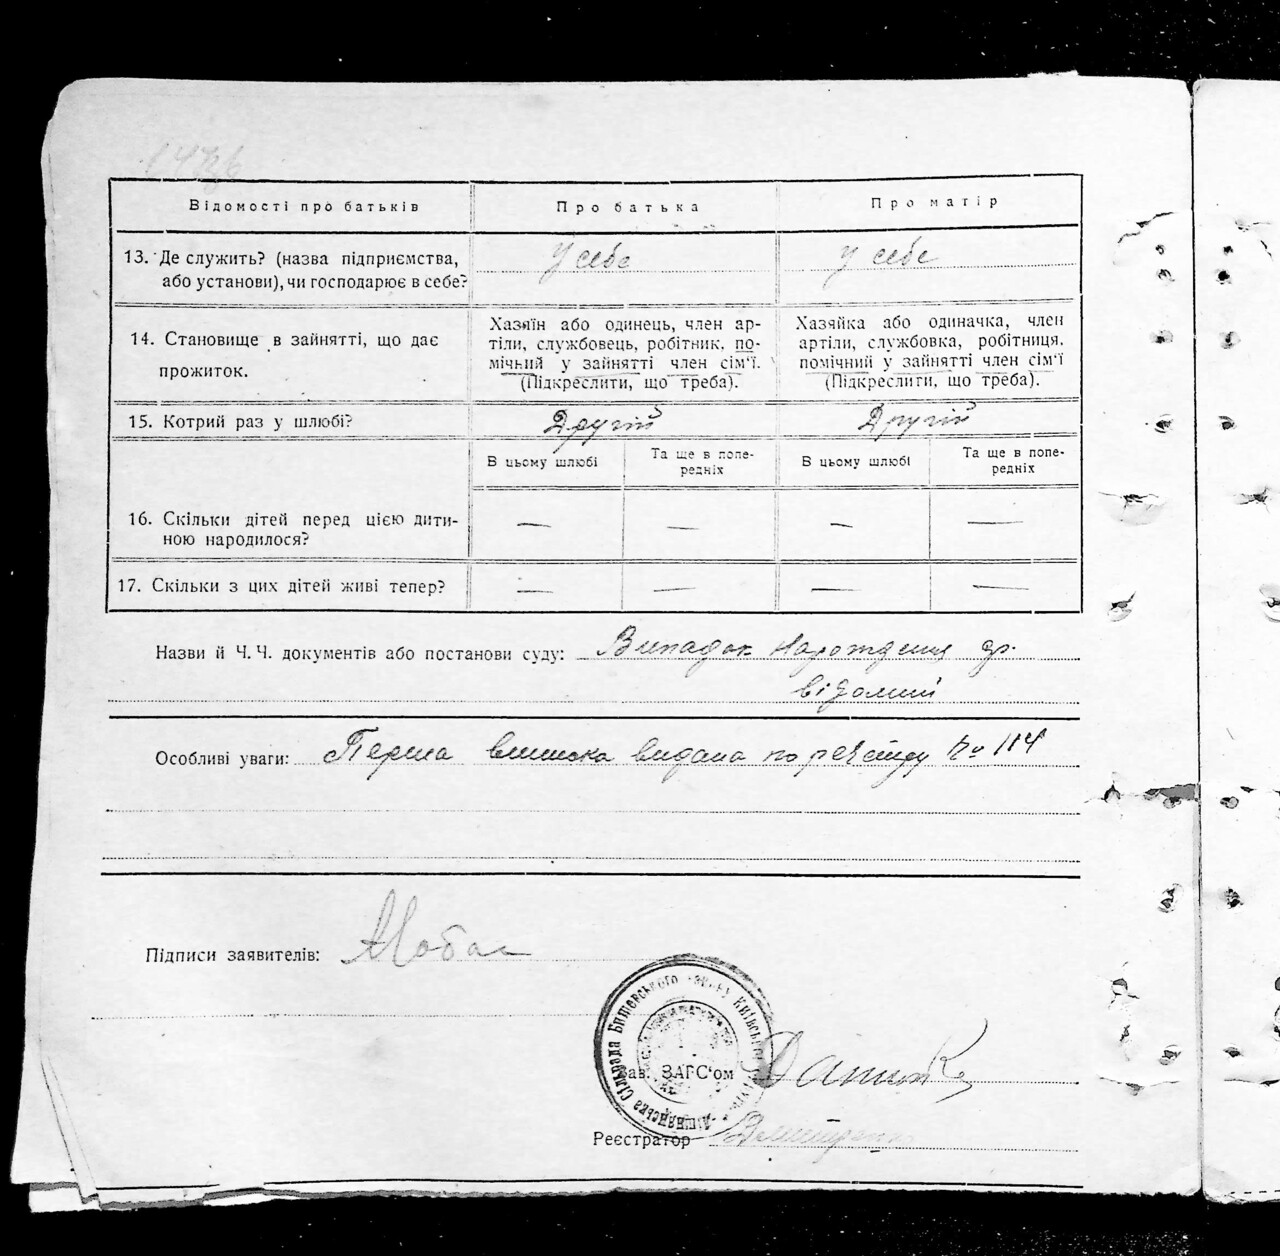 Відомості про батьків
Про батька
Про матір
13. Де служить? (назва підприємства,
або установи), чи господарює в себе?
У себе
у себе
14. Становище в зайнятті, що дає
прожиток.
Хазяїн або одинець, член ар-
тіли, службовець, робітник, по-
мічний у зайнятті член сім'ї.
(Підкреслити, що треба).
Хазяйка або одиначка, член
артіли, службовка, робітниця,
помічний у зайнятті член сім'ї
(Підкреслити, що треба).
15. Котрий раз у шлюбі?
Другій
Другій
В цьому шлюбі
Та ще в попе-
редніх
В цьому шлюбі
Та ще в попе-
редніх
16. Скільки дітей перед цією дити-
ною народилося?
— — — —
17. Скільки з цих дітей живі тепер?
— — — —
Назви й Ч. Ч. документів або постанови суду: Випадок нарождения
відомий
Особливі уваги: Перша виписка видана по реєстру № 114
Підписи заявителів:
Сільрада Бишевського району Київської
Зав. ЗАГС'ом
Реєстратор